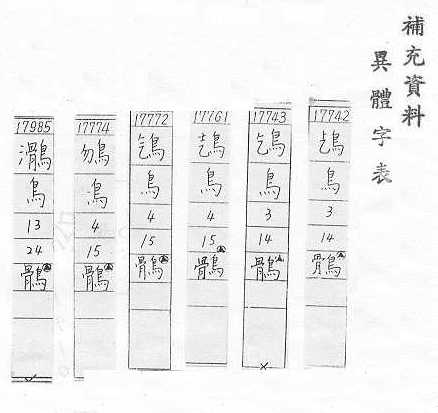 補充資料
異體字表
17742
鳥
3
14
鶻
17743
鳥
3
14
鶻
17761
鳥
4
15
鶻
17772
鳥
4
15
鶻
17774
鳥
4
15
鶻
17985
鳥
13
24
鶻